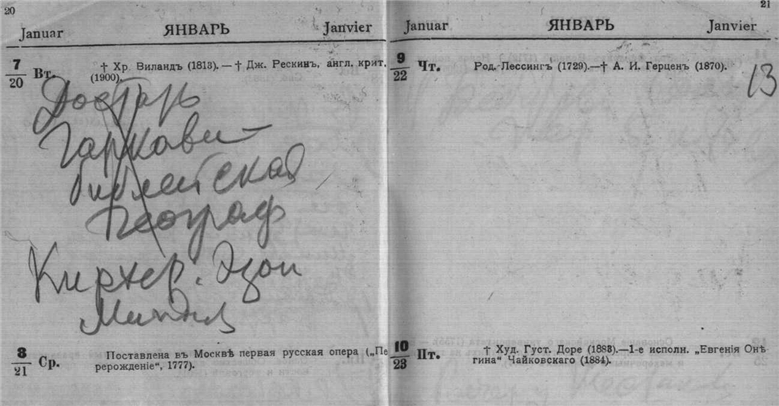 20
Januar ЯНВАРЬ Janvier
7/20 Вт. † Хр. Виландъ (1813). — † Дж. Рескинъ, англ. крит.
(1900).
Достарь
Гаркави —
библейская
географ
Кирхер. Эдип
8/21 Ср. Поставлена въ Москвѣ первая русская опера („Пе
рерожденіе“, 1777).
21
Januar ЯНВАРЬ Janvier
9/22 Чт. Род. Лессингъ (1729).—† А. И. Герценъ (1870).
13
10/23 Пт. † Худ. Густ. Доре (1883).—1-е исполн. „Евгенія Онѣ
гина“ Чайковскаго (1884).